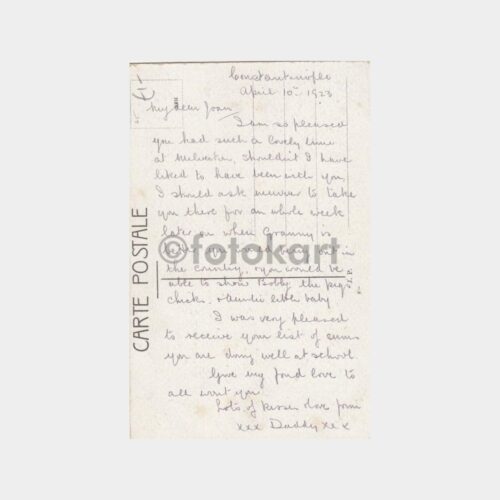 Constantinople
April 10th 1923
My dear Joan,
I am so pleased
you had such a lovely time
at shouldn't I have
liked to have been with you
I should ask to take
you there for an whole week
later on when Granny is
©fotokart
in
the country, & you would be
able to show Bobby the pigs
chicks, & Auntie's little baby.
I was very pleased
to receive your list of sums
you are doing well at school.
Give my fond love to
all with you
Lots of kisses & love from
xxx Daddy xxx
CARTE POSTALE